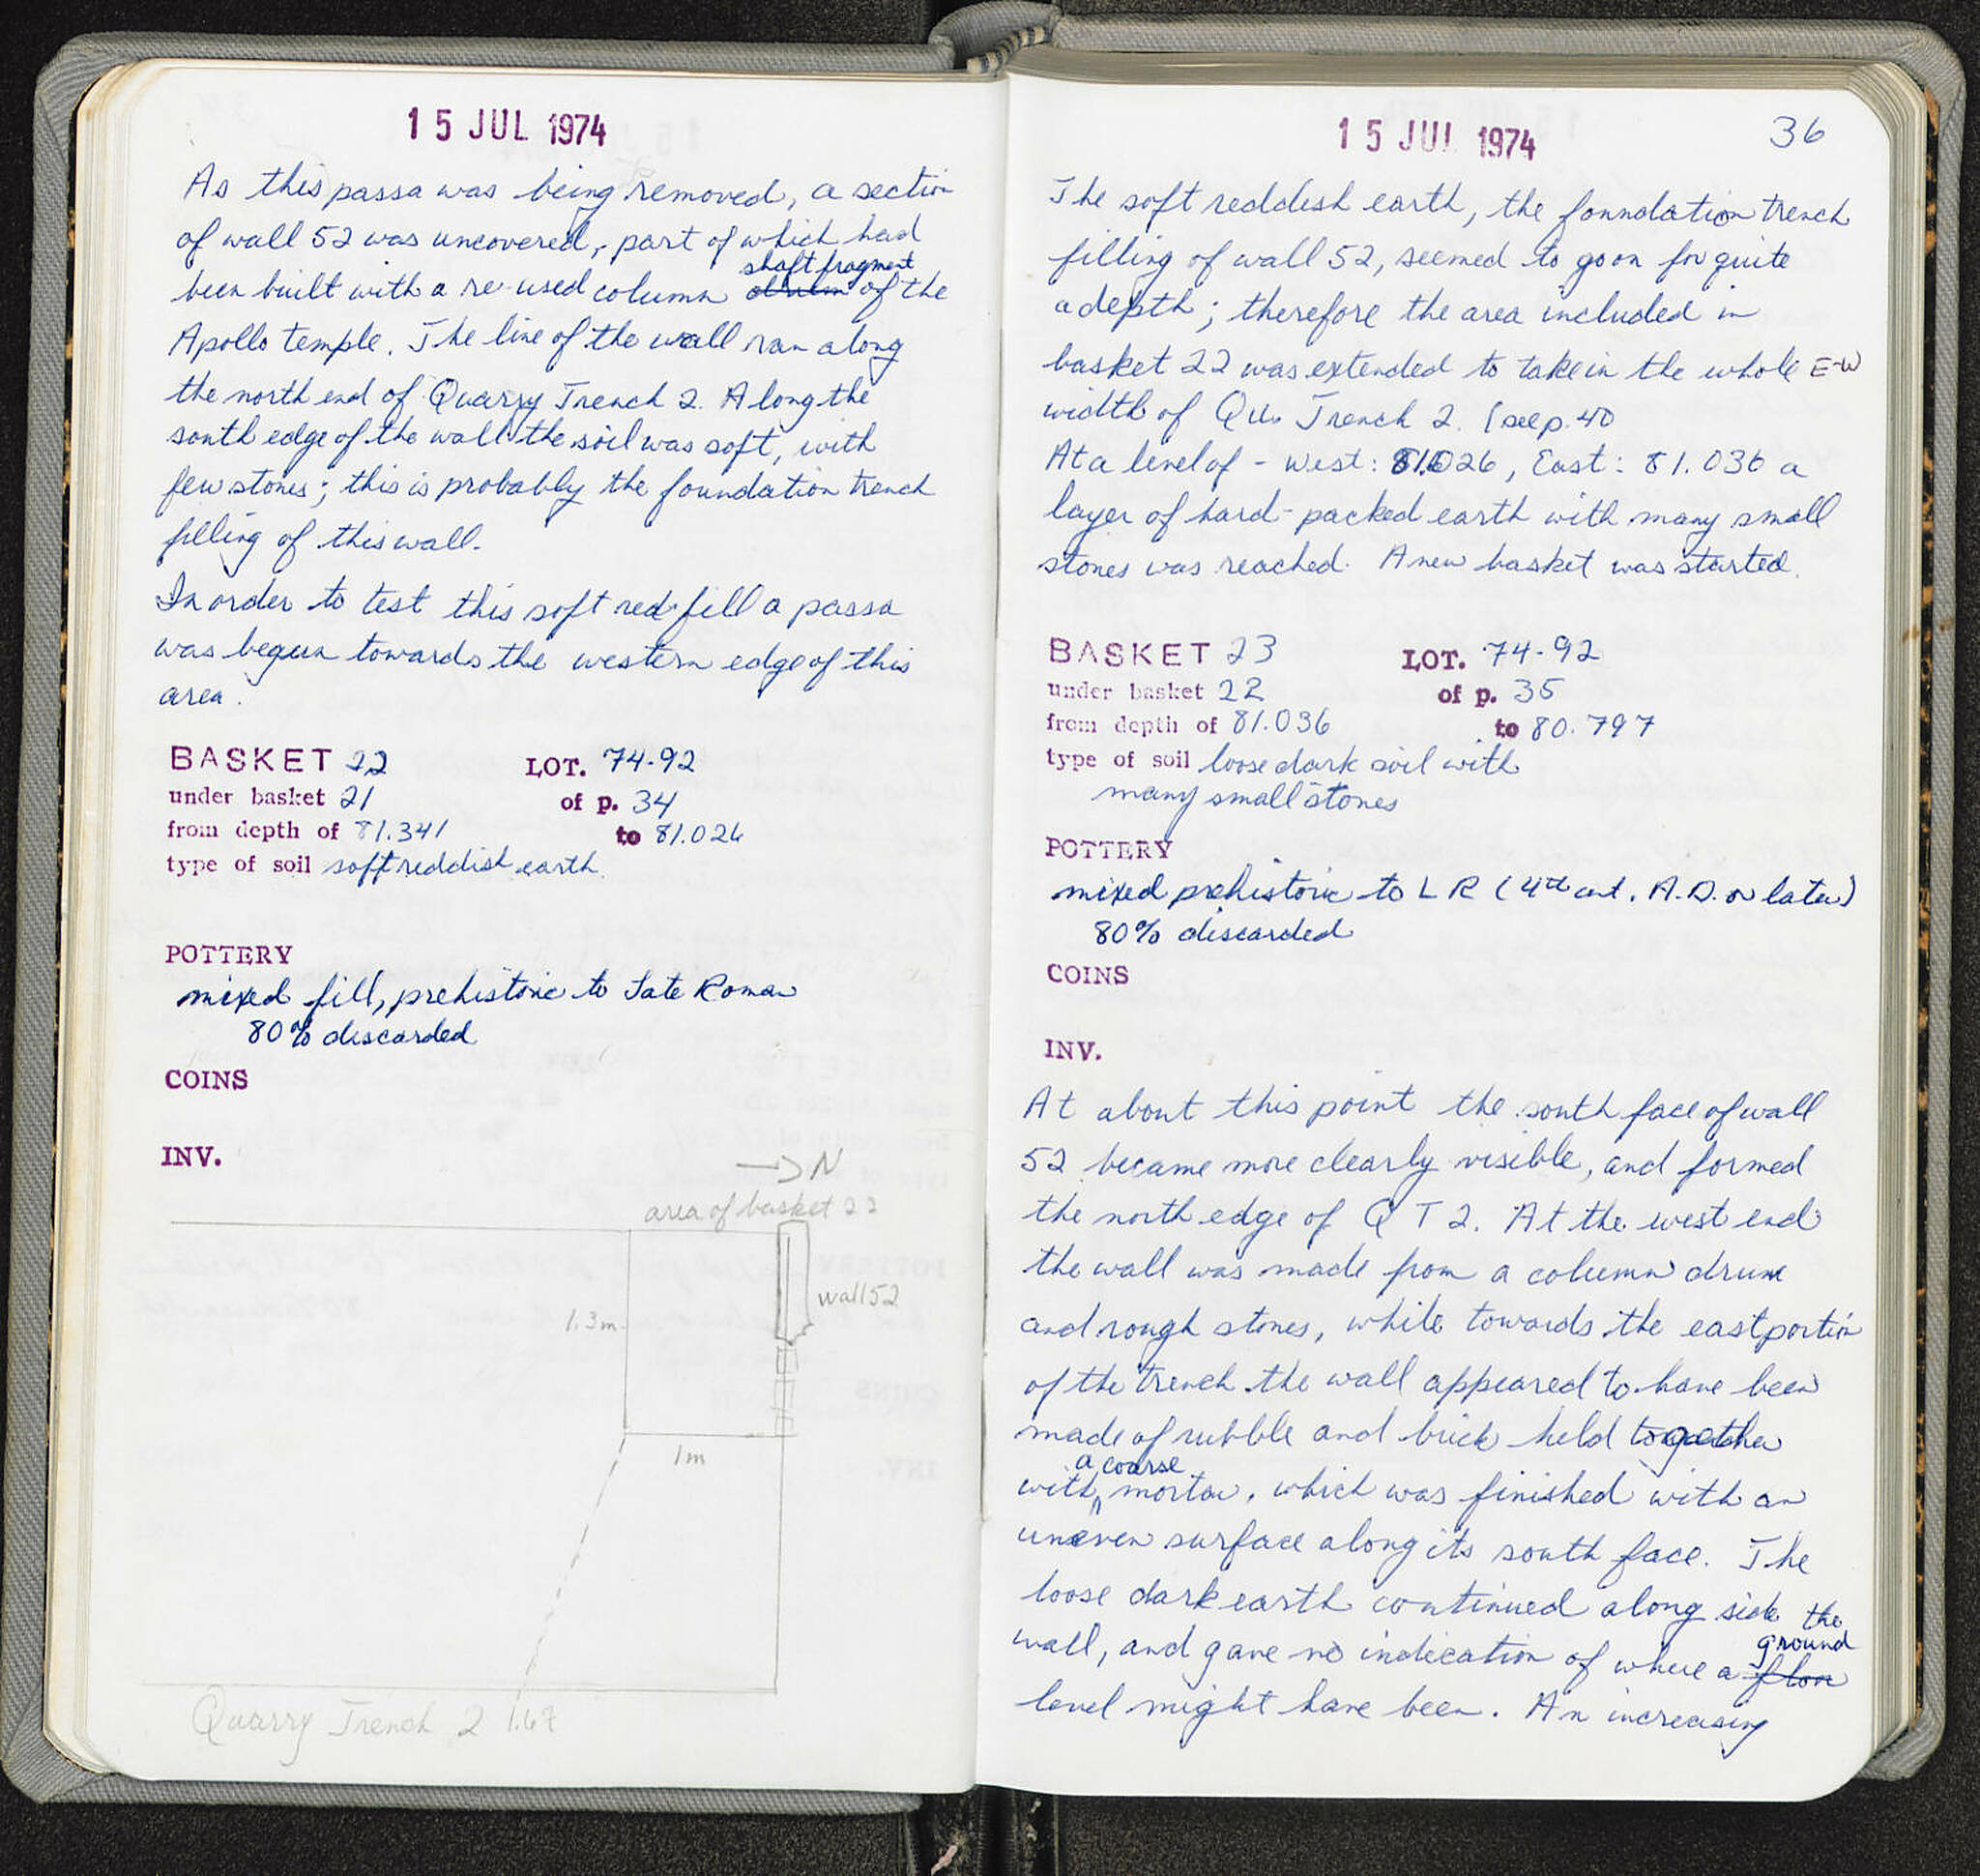 15 JUL 1974
As this passa was being removed, a section
of wall 52 was uncovered, part of which had
shaft fragment
been built with a re-used column drum of the
Apollo temple. The line of the wall ran along
the north end of Quarry Trench 2. Along the
south edge of the wall the soil was soft, with
few stones; this is probably the foundation trench
filling of this wall.
In order to test this soft red fill a passa
was begun towards the western edge of this
area.
BASKET 22 LOT. 74-92
under basket 21 of p. 34
from depth of 81.341 to 81.026
type of soil soft reddish earth.
POTTERY
mixed fill, prehistoric to Late Roman
80% discarded
COINS
INV.
→ N
area of basket 22
wall 52
1.3m
1m
Quarry Trench 2 1.67
15 JUL 1974 36
The soft reddish earth, the foundation trench
filling of wall 52, seemed to go on for quite
a depth; therefore the area included in
basket 22 was extended to take in the whole E-W
width of Qu. Trench 2. (see p. 40
At a level of - West: 81.026, East: 81.036 a
layer of hard-packed earth with many small
stones was reached. A new basket was started.
BASKET 23 LOT. 74-92
under basket 22 of p. 35
from depth of 81.036 to 80.797
type of soil loose dark soil with
many small stones
POTTERY
mixed prehistoric to LR (4th cent. A.D. or later)
80% discarded
COINS
INV.
At about this point the south face of wall
52 became more clearly visible, and formed
the north edge of QT2. At the west end
the wall was made from a column drum
and rough stones, while towards the east portion
of the trench the wall appeared to have been
made of rubble and brick held together
a coarse
with mortar, which was finished with an
uneven surface along its south face. The
loose dark earth continued along side the
ground
wall, and gave no indication of where a floor
level might have been. An increasing